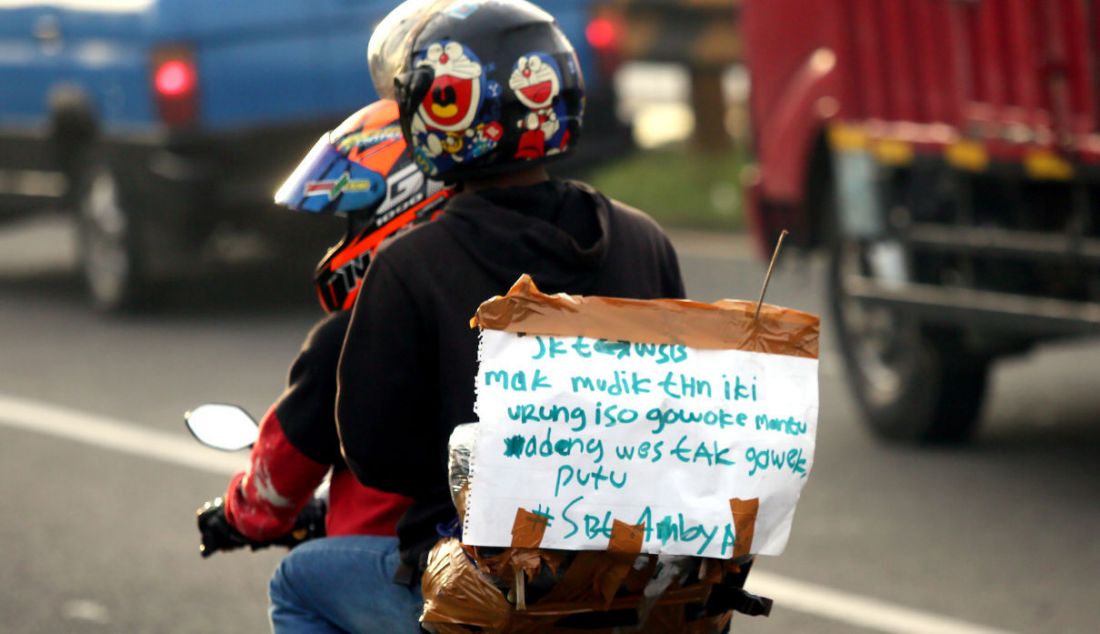 JKt ⇄ WSB
mak mudik tHn iki
urung iso gowoke mantu
wadang wes tAK gowek,
putu
#SBt AmbyA
1000